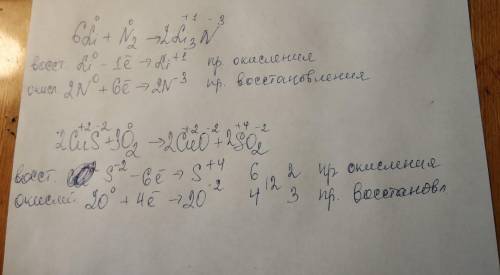 6Li⁰ + N₂⁰ → 2Li₃⁺¹N⁻³
восст. Li⁰ - 1ē → Li⁺¹ пр. окисления
окисл. 2N⁰ + 6ē → 2N⁻³ пр. восстановления
2Cu⁺²S⁻² + 3O₂⁰ → 2Cu⁺²O⁻² + 2S⁺⁴O₂⁻²
восст. S⁻² - 6ē → S⁺⁴ 6 2 пр окисления
12
окислит. 2O⁰ + 4ē → 2O⁻² 4 3 пр. восстановл